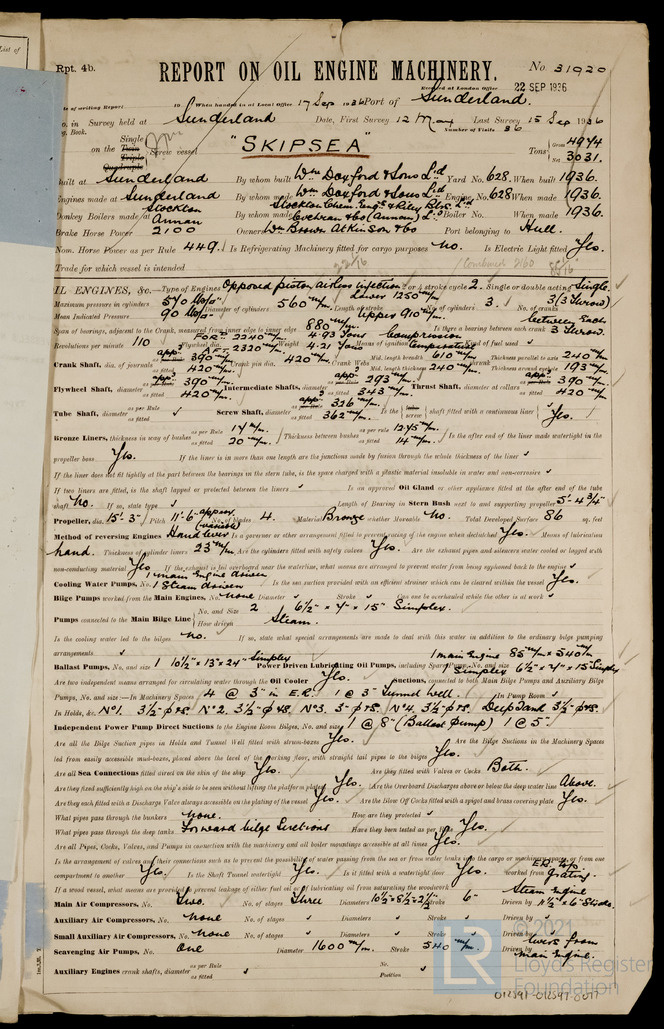 List of
Rpt. 4b.
REPORT ON OIL ENGINE MACHINERY.
No 31920
Received at London Office 22 SEP 1936
Date of writing Report 19 When handed in at Local Office 17 Sep 1936 Port of Sunderland.
No. in Survey held at Sunderland Date, First Survey 12 May Last Survey 15 Sep 1936
Reg. Book. Number of Visits 36
on the Single Twin Triple Quadruple Screw vessel "SKIPSEA" Tons Gross 4974 Net 3031.
Built at Sunderland By whom built Wm Doxford & Sons Ld Yard No. 628. When built 1936.
Engines made at Sunderland By whom made Wm Doxford & Sons Ld Engine No. 628 When made 1936.
Donkey Boilers made at Stockton Annan By whom made Stockton Chem. Engs & Riley Blrs. Ld Cochran & Co (Annan) Ld Boiler No. When made 1936.
Brake Horse Power 2100 Owners Wm Brown Atkinson & Co Port belonging to Hull.
Nom. Horse Power as per Rule 449. Is Refrigerating Machinery fitted for cargo purposes No. Is Electric Light fitted Yes.
Trade for which vessel is intended
OIL ENGINES, &c.—Type of Engines Opposed piston, airless injection 2 or 4 stroke cycle 2. Single or double acting Single.
Maximum pressure in cylinders 570 lbs/" Diameter of cylinders 560 m/m. Length of stroke Lower 1250 m/m Upper 910 m/m. No. of cylinders 3. No. of cranks 3 (3 throw)
Mean Indicated Pressure 90 lbs/"
Span of bearings, adjacent to the Crank, measured from inner edge to inner edge 880 m/m. Is there a bearing between each crank between Each 3 Throw.
Revolutions per minute 110 Flywheel dia. For. 2240 m/m. Aft. 2320 m/m. Weight 4.93 Tons 4.21 Tons Means of ignition Compression Temperature Kind of fuel used
Crank Shaft, dia. of journals as per Rule appd 390 m/m. as fitted 420 m/m. Crank pin dia. 420 m/m. Crank Webs Mid. length breadth 610 m/m Mid. length thickness 240 m/m. Thickness parallel to axis 240 m/m. Thickness around eyehole 193 m/m.
Flywheel Shaft, diameter appd 390 m/m. as fitted 420 m/m. Intermediate Shafts, diameter appd 293 m/m. as fitted 343 m/m. Thrust Shaft, diameter at collars appd 390 m/m. as fitted 420 m/m.
Tube Shaft, diameter as per Rule as fitted Screw Shaft, diameter appd 326 m/m. as fitted 362 m/m. Is the tube screw shaft fitted with a continuous liner Yes.
Bronze Liners, thickness in way of bushes as per Rule 17 m/m. as fitted 20 m/m. Thickness between bushes as per rule 12.75 m/m. as fitted 14 m/m. Is the after end of the liner made watertight in the
propeller boss Yes. If the liner is in more than one length are the junctions made by fusion through the whole thickness of the liner
If the liner does not fit tightly at the part between the bearings in the stern tube, is the space charged with a plastic material insoluble in water and non-corrosive
If two liners are fitted, is the shaft lapped or protected between the liners Is an approved Oil Gland or other appliance fitted at the after end of the tube
shaft No. If so, state type Length of Bearing in Stern Bush next to and supporting propeller 5'-4 3/4"
Propeller, dia. 15'-3" Pitch 11'-6" approx. (variable) No. of blades 4. Material Bronze whether Moveable No. Total Developed Surface 86 sq. feet
Method of reversing Engines Hand lever Is a governor or other arrangement fitted to prevent racing of the engine when declutched Yes. Means of lubrication
hand. Thickness of cylinder liners 23 m/m. Are the cylinders fitted with safety valves Yes. Are the exhaust pipes and silencers water cooled or lagged with
non-conducting material Yes If the exhaust is led overboard near the waterline, what means are arranged to prevent water from being syphoned back to the engine
Cooling Water Pumps, No. 1 main Engine driven 1 Steam driven Is the sea suction provided with an efficient strainer which can be cleared within the vessel Yes.
Bilge Pumps worked from the Main Engines, No. None Diameter Stroke Can one be overhauled while the other is at work
Pumps connected to the Main Bilge Line No. and Size 2 6½" x 7" x 15" Simplex.
How driven Steam.
Is the cooling water led to the bilges No. If so, state what special arrangements are made to deal with this water in addition to the ordinary bilge pumping
arrangements
Ballast Pumps, No. and size 1 10½" x 13" x 24" Simplex Power Driven Lubricating Oil Pumps, including Spare Pump, No. and size 1 main Engine 85 m/m x 540 m/m 1 Simplex 6½" x 7" x 15" Simplex
Are two independent means arranged for circulating water through the Oil Cooler Yes. Suctions, connected to both Main Bilge Pumps and Auxiliary Bilge
Pumps, No. and size:—In Machinery Spaces 4 @ 3" in E.R. 1 @ 3" Tunnel Well. In Pump Room
In Holds, &c. No1. 3½" P&S. No2. 3½" P&S. No3. 3" P&S. No4. 3½" P&S. Deep Tank 3½" P&S.
Independent Power Pump Direct Suctions to the Engine Room Bilges, No. and size 1 @ 8" (Ballast Pump) 1 @ 5"
Are all the Bilge Suction pipes in Holds and Tunnel Well fitted with strum-boxes Yes. Are the Bilge Suctions in the Machinery Spaces
led from easily accessible mud-boxes, placed above the level of the working floor, with straight tail pipes to the bilges Yes.
Are all Sea Connections fitted direct on the skin of the ship Yes. Are they fitted with Valves or Cocks Both.
Are they fixed sufficiently high on the ship's side to be seen without lifting the platform plates Yes. Are the Overboard Discharges above or below the deep water line Above.
Are they each fitted with a Discharge Valve always accessible on the plating of the vessel Yes. Are the Blow Off Cocks fitted with a spigot and brass covering plate Yes.
What pipes pass through the bunkers None. How are they protected
What pipes pass through the deep tanks Forward bilge Suctions Have they been tested as per rule Yes.
Are all Pipes, Cocks, Valves, and Pumps in connection with the machinery and all boiler mountings accessible at all times Yes.
Is the arrangement of valves and their connections such as to prevent the possibility of water passing from the sea or from water tanks into the cargo or machinery spaces, or from one
compartment to another Yes. Is the Shaft Tunnel watertight Yes. Is it fitted with a watertight door Yes. worked from E.R. top Grating.
If a wood vessel, what means are provided to prevent leakage of either fuel oil or lubricating oil from saturating the woodwork
Main Air Compressors, No. Two. No. of stages Three Diameters Stroke 6" Driven by Steam Engine
Auxiliary Air Compressors, No. None No. of stages Diameters Stroke Driven by
Small Auxiliary Air Compressors, No. None No. of stages Diameters Stroke Driven by
Scavenging Air Pumps, No. One Diameter 1600 m/m. Stroke 540 m/m. Driven by levers from main Engine.
Auxiliary Engines crank shafts, diameter as per Rule as fitted No. Position
© 2021
LR
Lloyd's Register
Foundation
012591-012597-0077